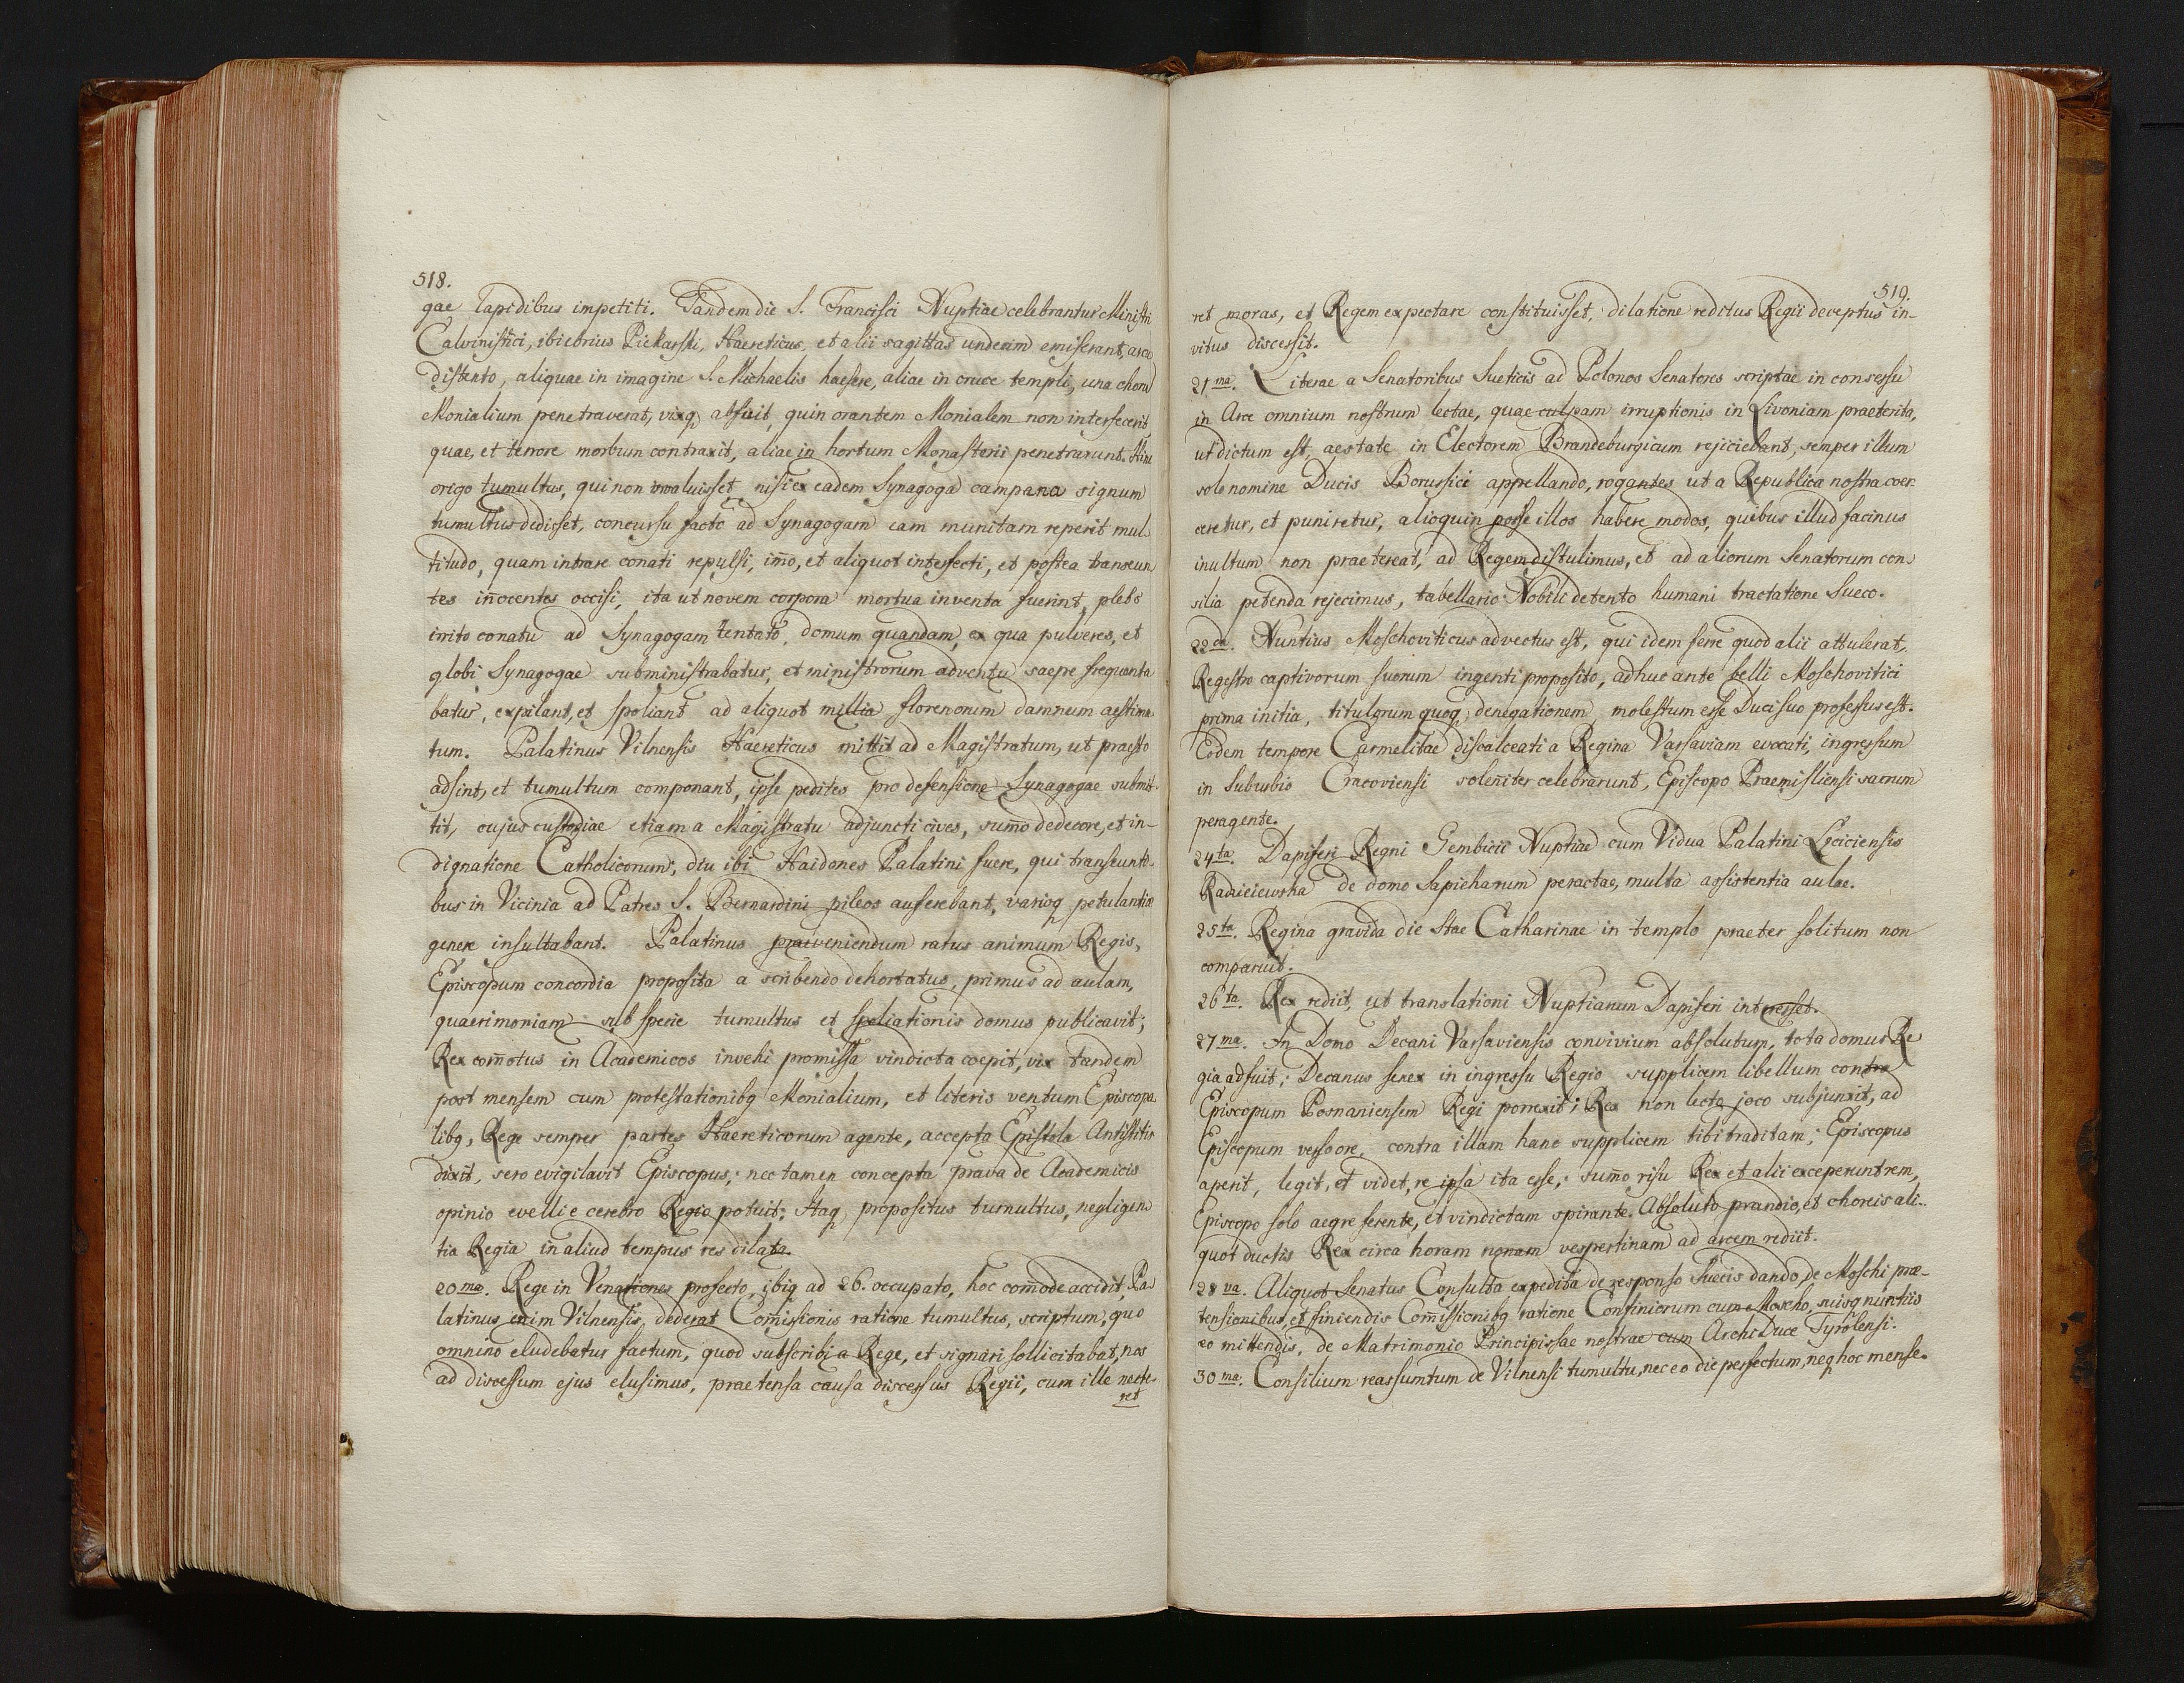 518.
gae lapidibus impetiti. Tandem die S. Francisci Nuptiae celebrantur Ministri
Calvinistici, ibi ebrius Piekarski, Haereticus, et alii sagittas undecim emiserant, arcu
distento, aliquae in imagine S. Michaelis haesere, aliae in cruce templi, una chorũ
Monialium penetraverat, vixq abfuit, quin orantem Monialem non interfecerit,
quae, et terrore morbum contraxit, aliae in hortum Monasterii penetrarunt. Hinc
origo tumultus, qui non invaluisset, nisi ex eadem Synagoga campana signum
tumultus dedisset, concursu facto ad Synagogam eam munitam reperit mul-
titudo, quam intrare conati repulsi, im̃o, et aliquot interfecti, et postea transeun
tes iñocentes occisi, ita ut novem corpora mortua inventa fuerint, plebs
irrito conatu ad Synagogam tentato, domum quandam, ex qua pulveres, et
globi Synagogae subministrabatur, et ministrorum adventu saepe frequenta
batur, expilant, et spoliant ad aliquot millia florenorum damnum aestima
tum. Palatinus Vilnensis Haereticus mittit ad Magistratum, ut praesto
adsint, et tumultum componant, ipse pedites pro defensione Synagogae submit-
tit, cujus custodiae etiam a Magistratu adjuncti cives, sum̃o dedecore, et in-
dignatione Catholicorum, diu ibi Haidones Palatini fuere, qui transeunti-
bus in Vicinia ad Patres S. Bernardini pileos auferebant, varioq petulantiae
genere insultabant. Palatinus praeveniendum ratus animum Regis,
Episcopum concordia proposita a scribendo dehortatus, primus ad aulam,
quaerimoniam sub specie tumultus et spoliationis domus publicavit;
Rex com̃otus in Academicos invehi promissa vindicta coepit, vix tandem
post mensem cum protestationibq Monialium, et literis ventum Episcopa
libq, Rege semper partes Haereticorum agente, accepta Epistola Antistitis
dixit, sero evigilavit Episcopus; nec tamen concepta prava de Academicis
opinio evelli e cerebro Regio potuit; Itaq propositus tumultus, negligen
tia Regia in aliud tempus res dilata.
20 ma. Rege in Venationes profecto, ibiq ad 26. occupato, hoc com̃ode accidit, Pa
latinus enim Vilnensis, dederat Com̃issionis ratione tumultus, scriptum, quo
omnino eludebatur factum, quod subscribi a Rege, et signari sollicitabat, nos
ad discessum ejus elusimus, praetensa causa discessus Regii, cum ille necte-
ret
519.
ret moras, et Regem expectare constituisset, dilatione reditus Regii deceptus in-
vitus discessit.
21 ma. Literae a Senatoribus Sueticis ad Polonos Senatores scriptae in consessu
in Arce omnium nostrum lectae, quae culpam irruptionis in Livoniam praeterita,
ut dictum est, aestate in Electorem Brandeburgicum rejiciebant, semper illum
solo nomine Ducis Borussici appellando, rogantes ut a Republica nostra coer
ceretur, et puniretur, alioquin posse illos habere modos, quibus illud facinus
inultum non praetereat, ad Regem distulimus, et ad aliorum Senatorum con
silia petenda rejecimus, tabellario Nobili detento humani tractatione Sueco.
22 da. Nuntius Moschoviticus advectus est, qui idem ferre quod alii attulerat,
Regestro captivorum suorum ingenti proposito, adhuc ante belli Moschovitici
prima initia, titulorum quoq denegationem molestum esse Duci suo professus est.
Eodem tempore Carmelitae discalceati a Regina Varsaviam evocati, ingressum
in Suburbio Cracoviensi soleñiter celebrarunt, Episcopo Praemisliensi sacrum
peragente.
24 ta. Dapiferi Regni Gembicii Nuptiae cum Vidua Palatini Lęciciensis
Radzieiewska de domo Sapieharum peractae, multa assistentia aulae.
25 ta. Regina gravida die Stae Catharinae in templo praeter solitum non
comparuit.
26 ta. Rex rediit, ut translationi Nuptiarum Dapiferi interesset.
27 ma. In Domo Decani Varsaviensis convivium absolutum, tota domus Re
gia adfuit; Decanus senex in ingressu Regio supplicem libellum contra
Episcopum Posnaniensem Regi porrexit; Rex non lecto joco subjunxit, ad
Episcopum verso ore, contra illam hanc supplicem tibi traditam; Episcopus
aperit, legit, et videt, re ipsa ita esse; sum̃o risu Rex et alii exceperunt rem,
Episcopo solo aegre ferente, et vindictam spirante. Absoluto prandio, et choreis ali-
quot ductis Rex circa horam nonam vespertinam ad arcem rediit.
28 va. Aliquot Senatus Consulta expedita de responso Suecis dando, de Moschi prae-
tensionibus, et finiendis Com̃issionibq ratione Confiniorum cum Moscho, suisq nuntiis
eo mittendis, de Matrimonio Principissae nostrae cum ArchiDuce Tyrolensi.
30 ma. Consilium reassumtum de Vilnensi tumultu, nec eo die perfectum, neq hoc mense.